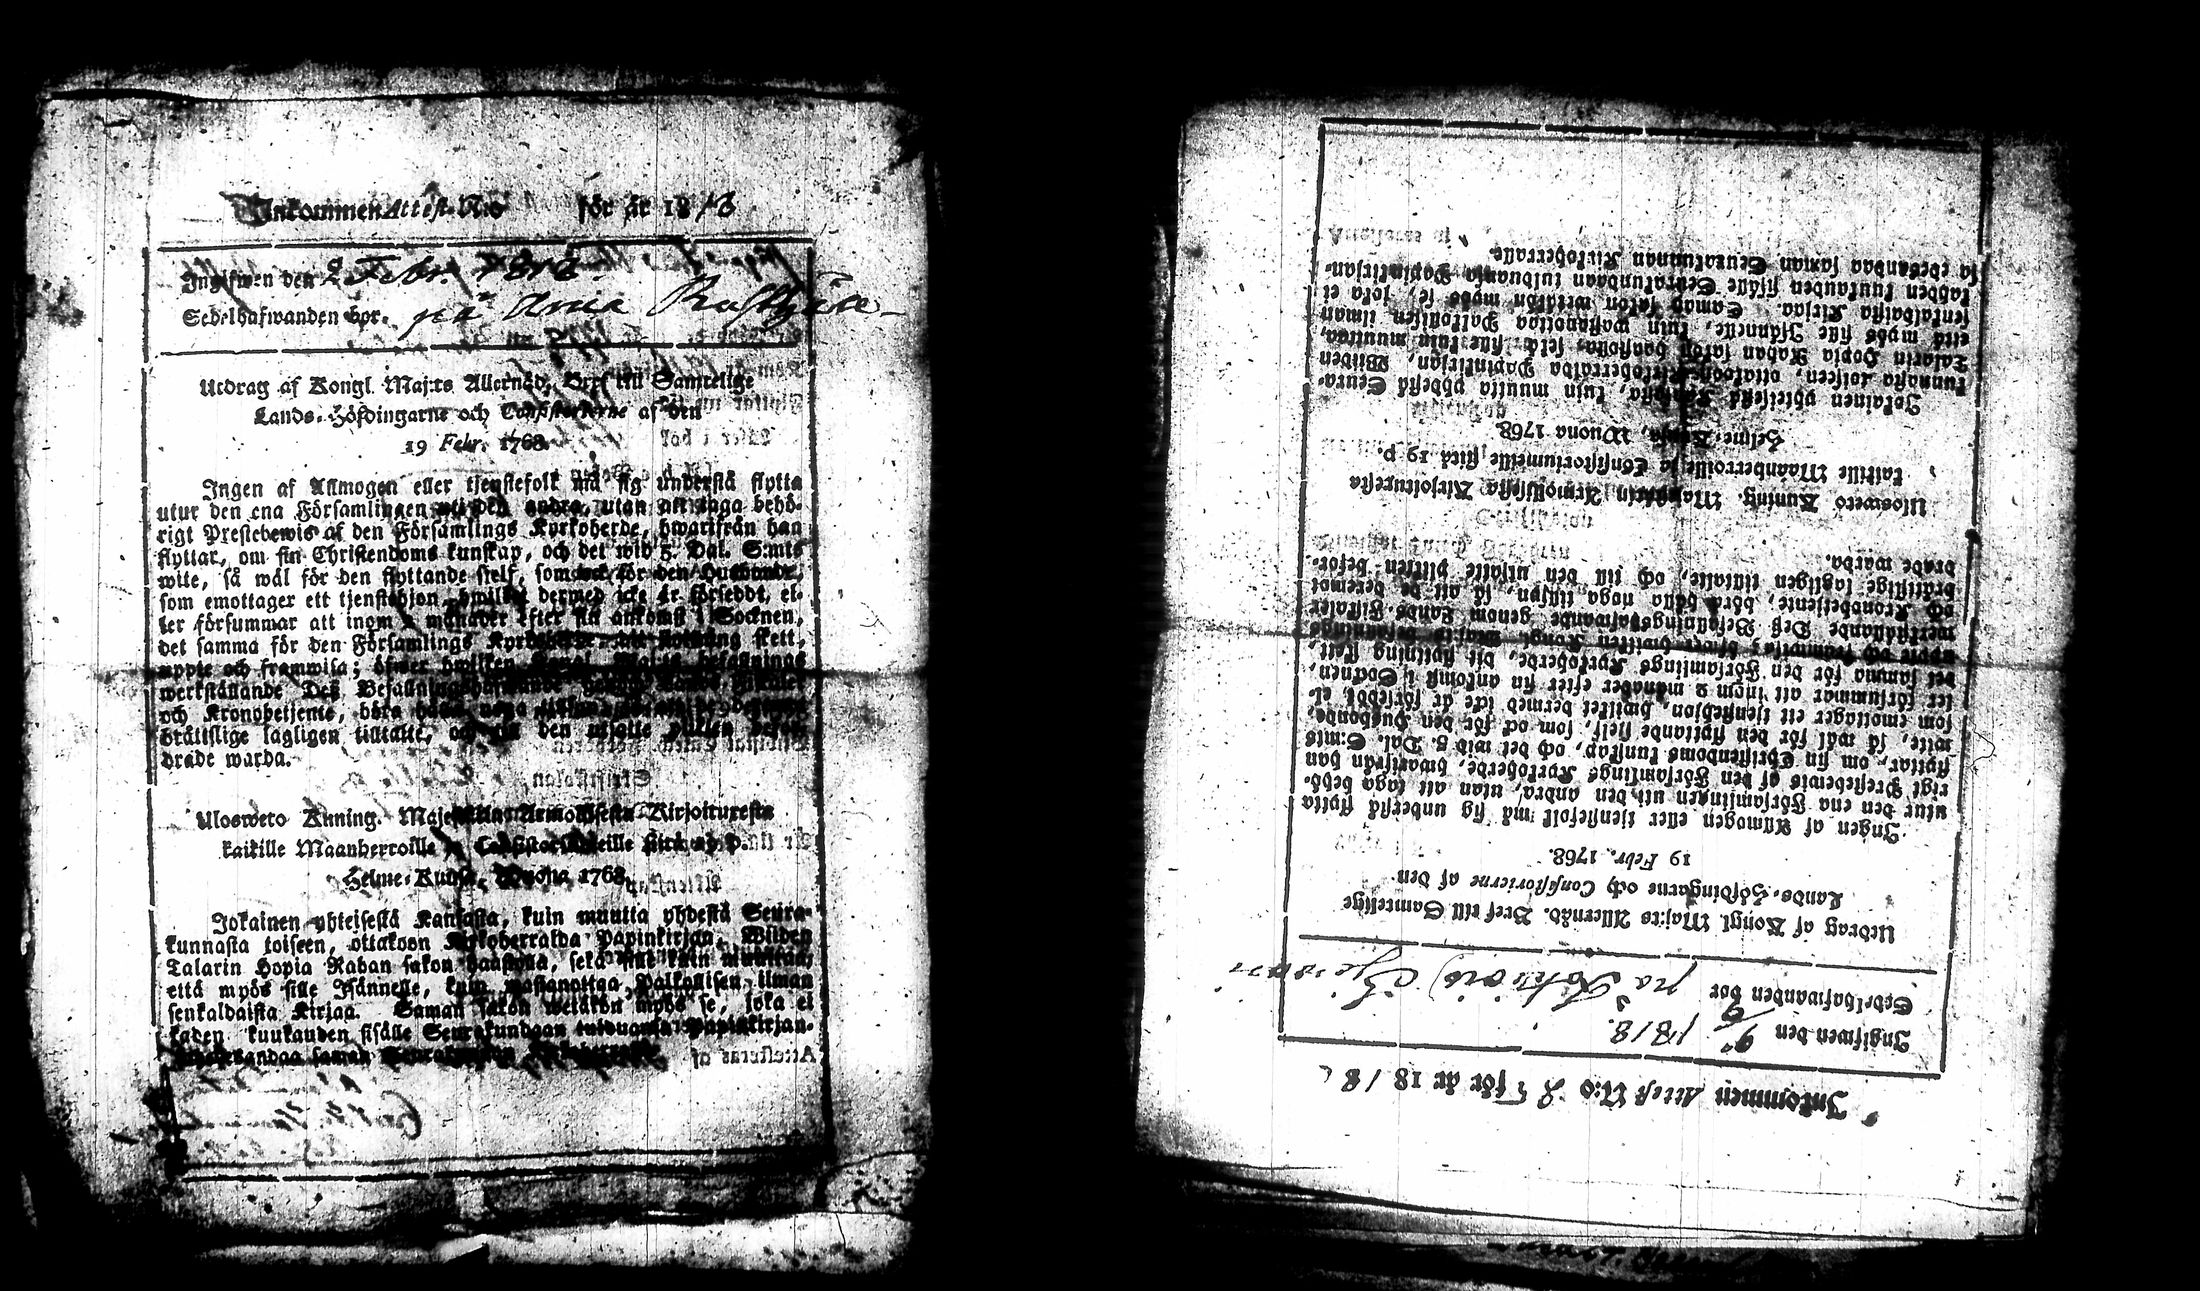 Inkommen Attest. N:o för år 1818
Ingifwen den 2 Febr. 1818
Sedelhafwanden bor. på
Utdrag af Kongl. Maj:ts Allernåd. Bref till Samtelige
Lands-Höfdingarne och Consistorierne af den
19 Febr. 1768.
Ingen af Allmogen eller tjenstefolk må sig understå flytta
utur den ena Församlingen uti den andra, utan att taga behö-
rigt Prestebewis af den Församlings Kyrkoherde, hwarifrån han
flyttar, om sin Christendoms kunskap, och det wid 5. Dal. S:mts
wite, så wäl för den flyttande sjelf, som ock för den Husbonde,
som emottager ett tjenstehjon, hwilket dermed icke är försedt, el-
ler försummar att inom 2 månader efter sin ankomst i Socknen,
det samma för den Församlings Kyrkoherde, dit flyttning skett,
uppte och framwisa; öfwer hwilken Kongl. Maj:ts befallnings
werkställande Deß Befallningshafwande genom Lands-Fiskaler
och Kronobetjente, böra hålla noga tillsyn, så att de deremot
bråttslige lagligen tilltalte, och till den utsatte plikten befor-
drade warda.
Ulosweto Kuning. Majestetin Armollisesta Kirjoituxesta
kaikille Maanherroille ja Consistoriumeille siitä 19 p.
Helme-Kuusa, Wuona 1768.
Jokainen yhteisestä Kansasta, kuin muutta yhdestä Seura-
kunnasta toiseen, ottakoon Kirkoherralda Papinkirjan, Wiiden
Talarin Hopia Rahan sakon haastolla, sekä sille kuin muuttaa,
että myös sille Isännelle, kuin wastanottaa Palkollisen ilman
senkaldaista Kirjaa. Saman sakon wetäkön myös se, joka ei
kahden kuukauden sisälle Seurakundaan tulduansa Papinkirjan-
sa edesandaa saman Seurakunnan Kirkoherralle.
Inkommen Attest N:o 27 för år 1818
Ingifwen den 9/9 1818.
Sedelhafwanden bor på
Utdrag af Kongl. Maj:ts Allernåd. Bref till Samtelige
Lands-Höfdingarne och Consistorierne af den
19 Febr. 1768.
Ingen af Allmogen eller tjenstefolk må sig understå flytta
utur den ena Församlingen uti den andra, utan att taga behö-
rigt Prestebewis af den Församlings Kyrkoherde, hwarifrån han
flyttar, om sin Christendoms kunskap, och det wid 5. Dal. S:mts
wite, så wäl för den flyttande sjelf, som ock för den Husbonde,
som emottager ett tjenstehjon, hwilket dermed icke är försedt, el-
ler försummar att inom 2 månader efter sin ankomst i Socknen,
det samma för den Församlings Kyrkoherde, dit flyttning skett,
uppte och framwisa; öfwer hwilken Kongl. Maj:ts befallnings
werkställande Deß Befallningshafwande genom Lands-Fiskaler
och Kronobetjente, böra hålla noga tillsyn, så att de deremot
bråttslige lagligen tilltalte, och till den utsatte plikten befor-
drade warda.
Ulosweto Kuning. Majestetin Armollisesta Kirjoituxesta
kaikille Maanherroille ja Consistoriumeille siitä 19 p.
Helme-Kuusa, Wuona 1768.
Jokainen yhteisestä Kansasta, kuin muutta yhdestä Seura-
kunnasta toiseen, ottakoon Kirkoherralda Papinkirjan, Wiiden
Talarin Hopia Rahan sakon haastolla, sekä sille kuin muuttaa,
että myös sille Isännelle, kuin wastanottaa Palkollisen ilman
senkaldaista Kirjaa. Saman sakon wetäkön myös se, joka ei
kahden kuukauden sisälle Seurakundaan tulduansa Papinkirjan-
sa edesandaa saman Seurakunnan Kirkoherralle.